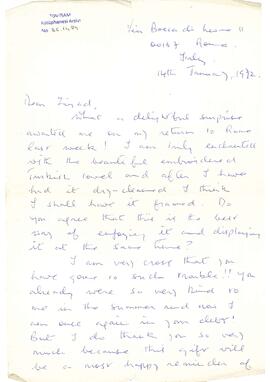 Via Bocca di Leone 11
00187 Roma
Italy
14th January, 1992.
Dear Ziyad,
What a delightful surprise
awaited me on my return to Rome
last week! I am truly enchanted
with the beautiful embroidered
Turkish towel and after I have
had it dry-cleaned I think
I shall have it framed. Do
you agree that this is the best
way of enjoying it and displaying
it at the same time?
I am very cross that you
have gone to such trouble!! You
already were so very kind to
me in the summer and now I
am once again in your debt!
But I do thank you so very
much because this gift will
be a most happy reminder of